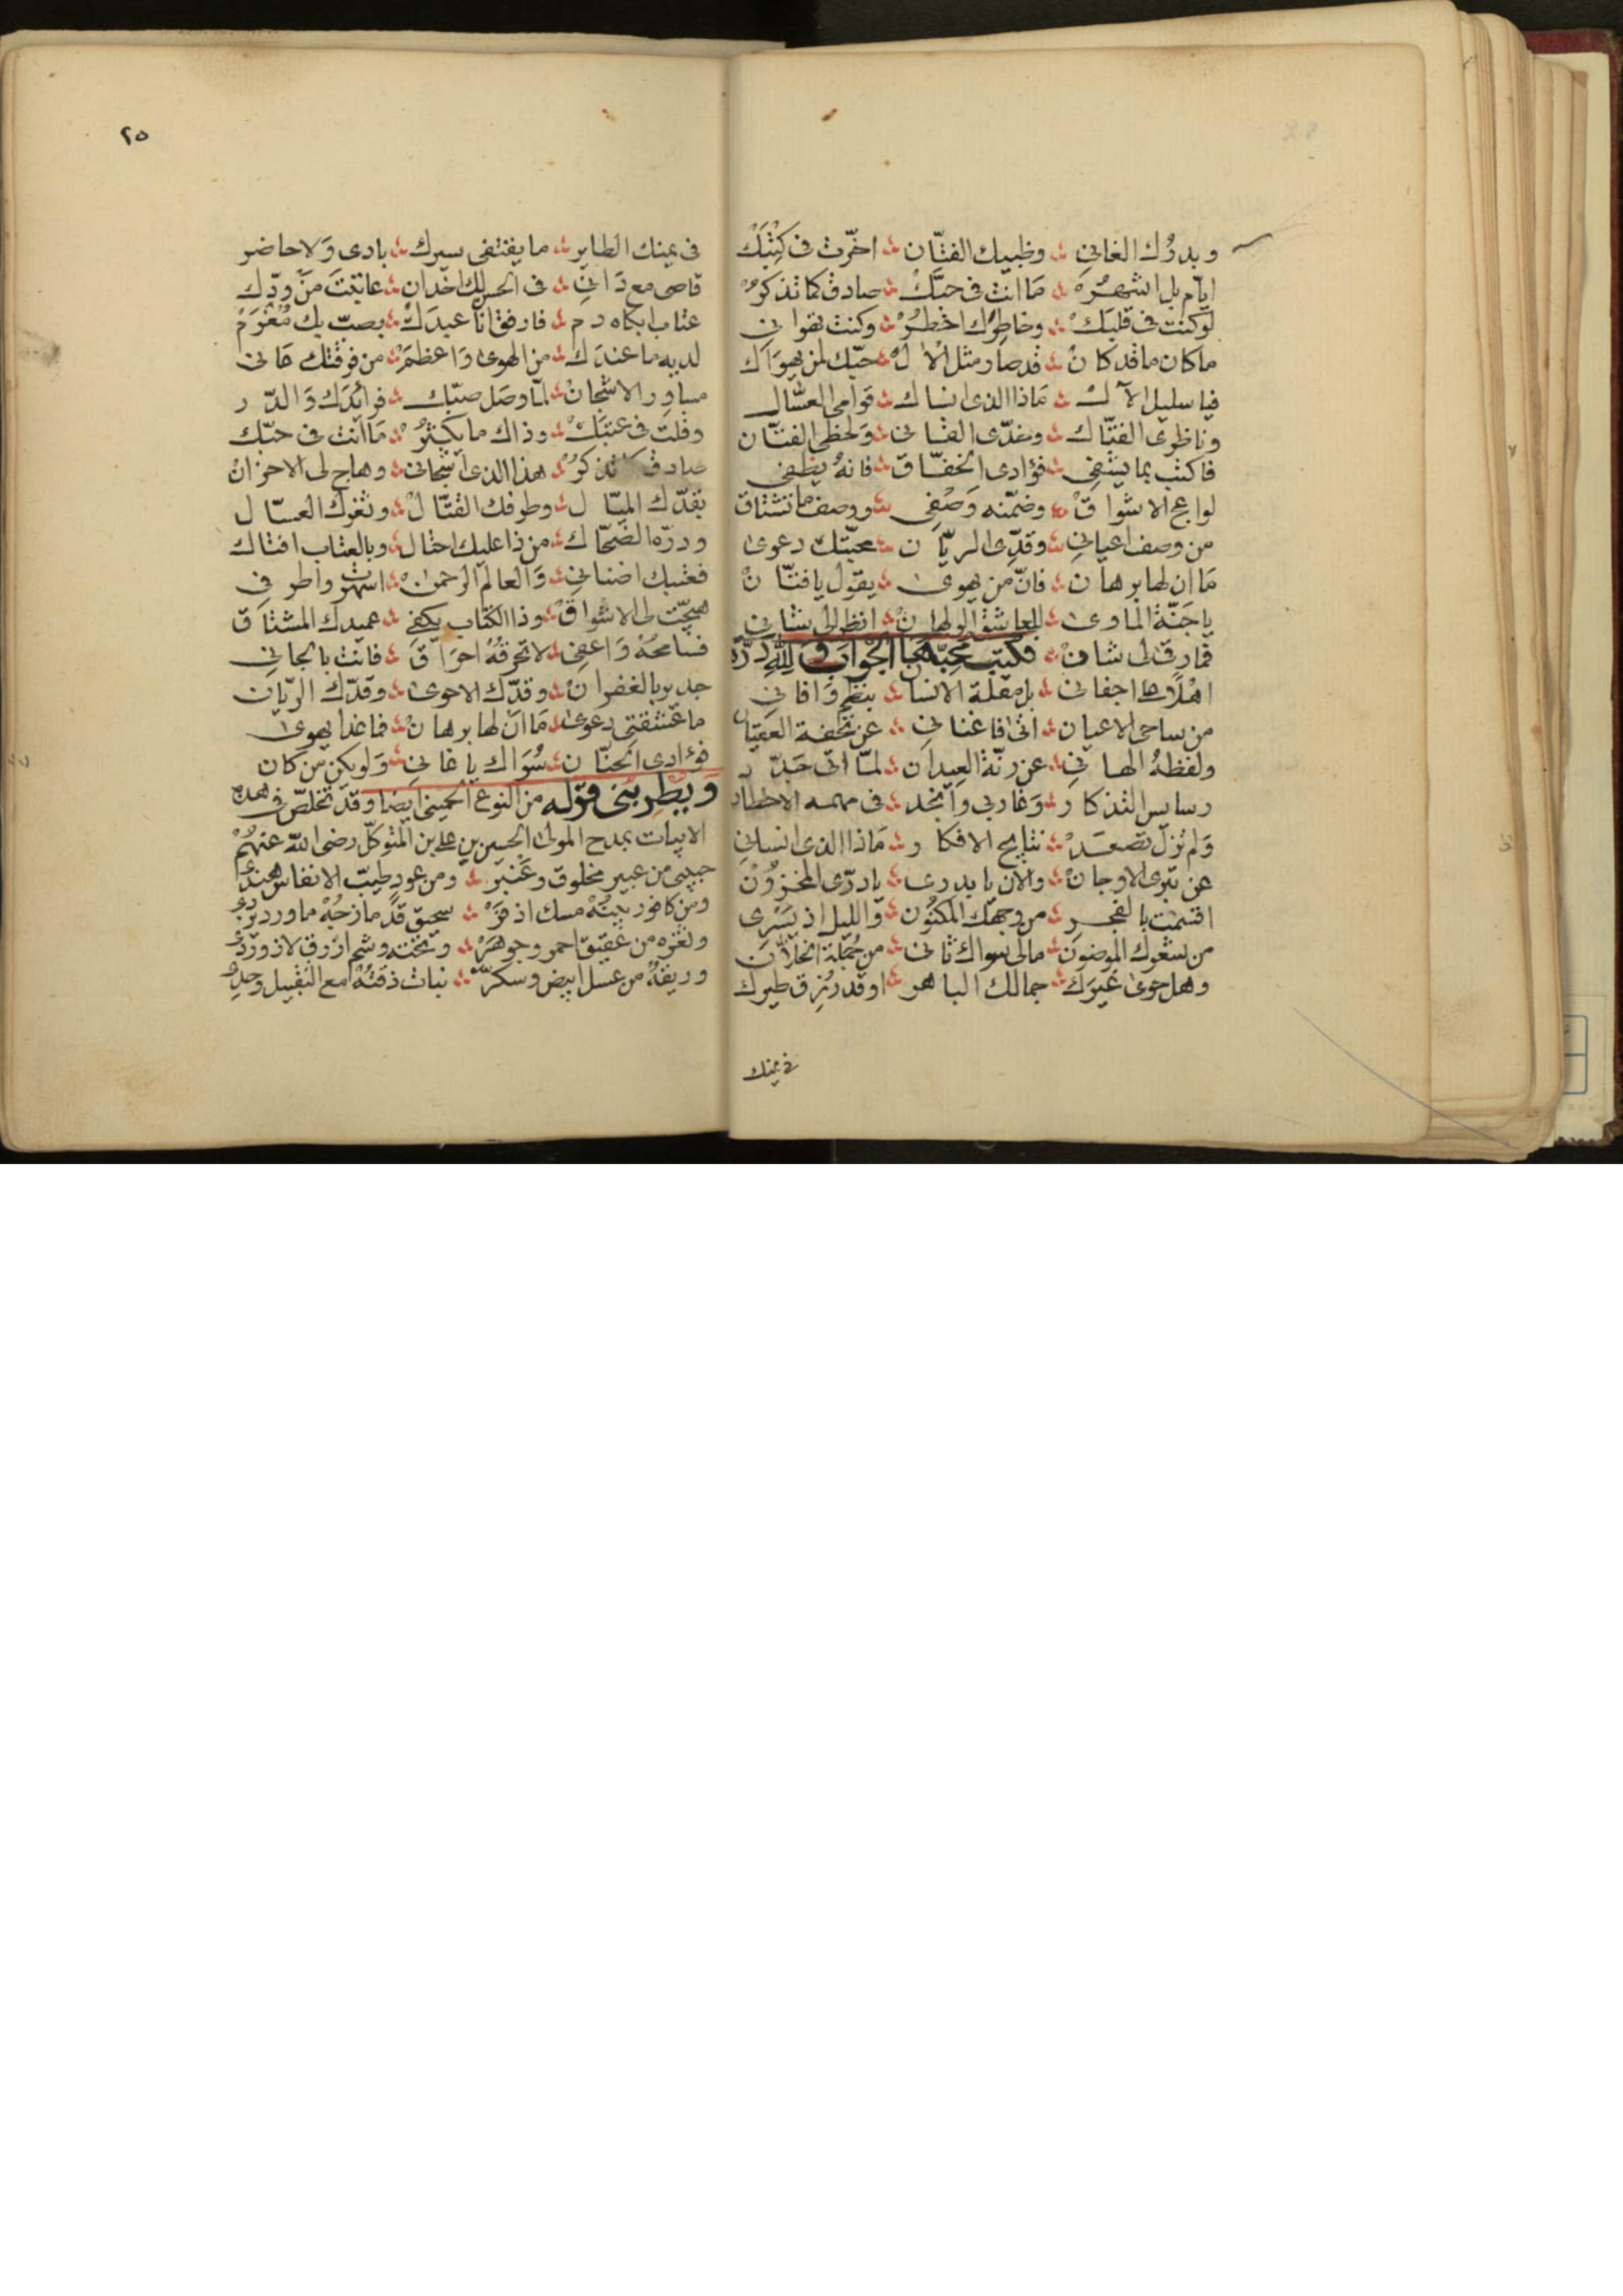 وبدرك الغاني وظبيك الفتان اخرت في كتبك
ايام بل اشهره ما انت في حبك صادق كما تذكره
لو كنت في قلبك وخاطرك اخطر وكنت تهواني
ما كان ما قد كان قد صار مثل الال حبك لمن يهواك
فيا سليل الآل ماذا الذي انساك قوامي العسال
وناظري الفتاك وخدي القاني ولحظي الفتان
فاكتب بما يشفي فؤادي الخفاق فانه يطفي
لواعج الاشواق وضمنه وصفي ووصف ما تشتاق
من وصف اعياني وقدي الريان محبتك دعوى
ما ان لها برهان فان من يهوى يقول يا فتان
يا جنة الماوى للعاشق الولهان انظر الى شاني
فما رقى لي شان فكتب محبه مجيبا الجواب ولله دره
اهلا اجفاني بل مقلة الانسان بنظم وافاني
من ساحي الاعيان اتى فاغناني عن تحفة العقيان
ولفظه الهاني عن رنة العيدان لما اتى جدد
رسايس التذكار وغار بي وانجد في مهمه الاخطار
ولم تزل تصعد نتايج الافكار وماذا الذي انساني
عن تبري الاوجان والان يا بدري يا دري المخزون
اقسمت بالفجر من وجهك المكنون والليل اذ يسري
من شعرك الموضون مالي سواك ثاني من جملة الخلان
وهل حوى غيرك جمالك الباهر او قد رزق طيرك
في يمنك
٢٥
في يمنك الطاير ما يقتفي سيرك بادي ولا حاضر
قاصي مع داني في الحسن لك اخدان عاتبت من ودك
عتاب ابكاه دم فارفق انا عبدك بصب بك مغرم
لديه ما عندك من الهوى واعظم من فرقتك عاني
مساور الاشجان لما وصل صبك فرائدك والدر
وقلت في عتبك وذاك ما يكثر ما انت في حبك
صادق كما تذكر هذا الذي اشجاني وهاج لي الاحزان
بقدك الميال وطرفك القتال وثغرك العسال
ودره الضحاك من ذا عليك احتال وبالعتاب افتاك
فعتبك اضناني والعالم الرحمن اسهرت اطرفي
هيجت لي الاشواق وذا الكتاب يكفي عميدك المشتاق
فسامحه واعفي لا تحرقه احراق فانت بالجاني
جدير بالغفران وقدك الاحوى وقدك الريان
ما عشقتي دعوى ما ان لها برهان فما غدا يهوى
فؤادي الحنان سواك يا غاني ولو يكن من كان
ويطربني قوله من النوع الحميني ايضا وقد تخلص في هذه
الابيات بمدح المولى الحسين بن علي بن المتوكل رضي الله عنهم
حبيبي من عبير مخلوق وعنبر ومن عود طيب الانفاس هندي
ومن كافور بيته مسك اذفر سحيق قد مازجه ماورد
وثغره من عقيق احمر وجوهر وتحته وشم ازرق لازوردي
وريقه من عسل ابيض وسكر نبات ذقته امع التقبيل وحدي